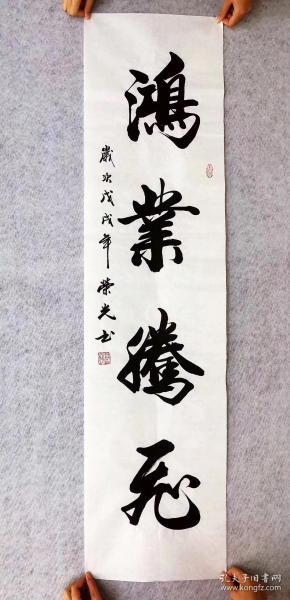 鴻業騰飛
歲次戊戌年榮光書
孔夫子旧书网
kongfz.com